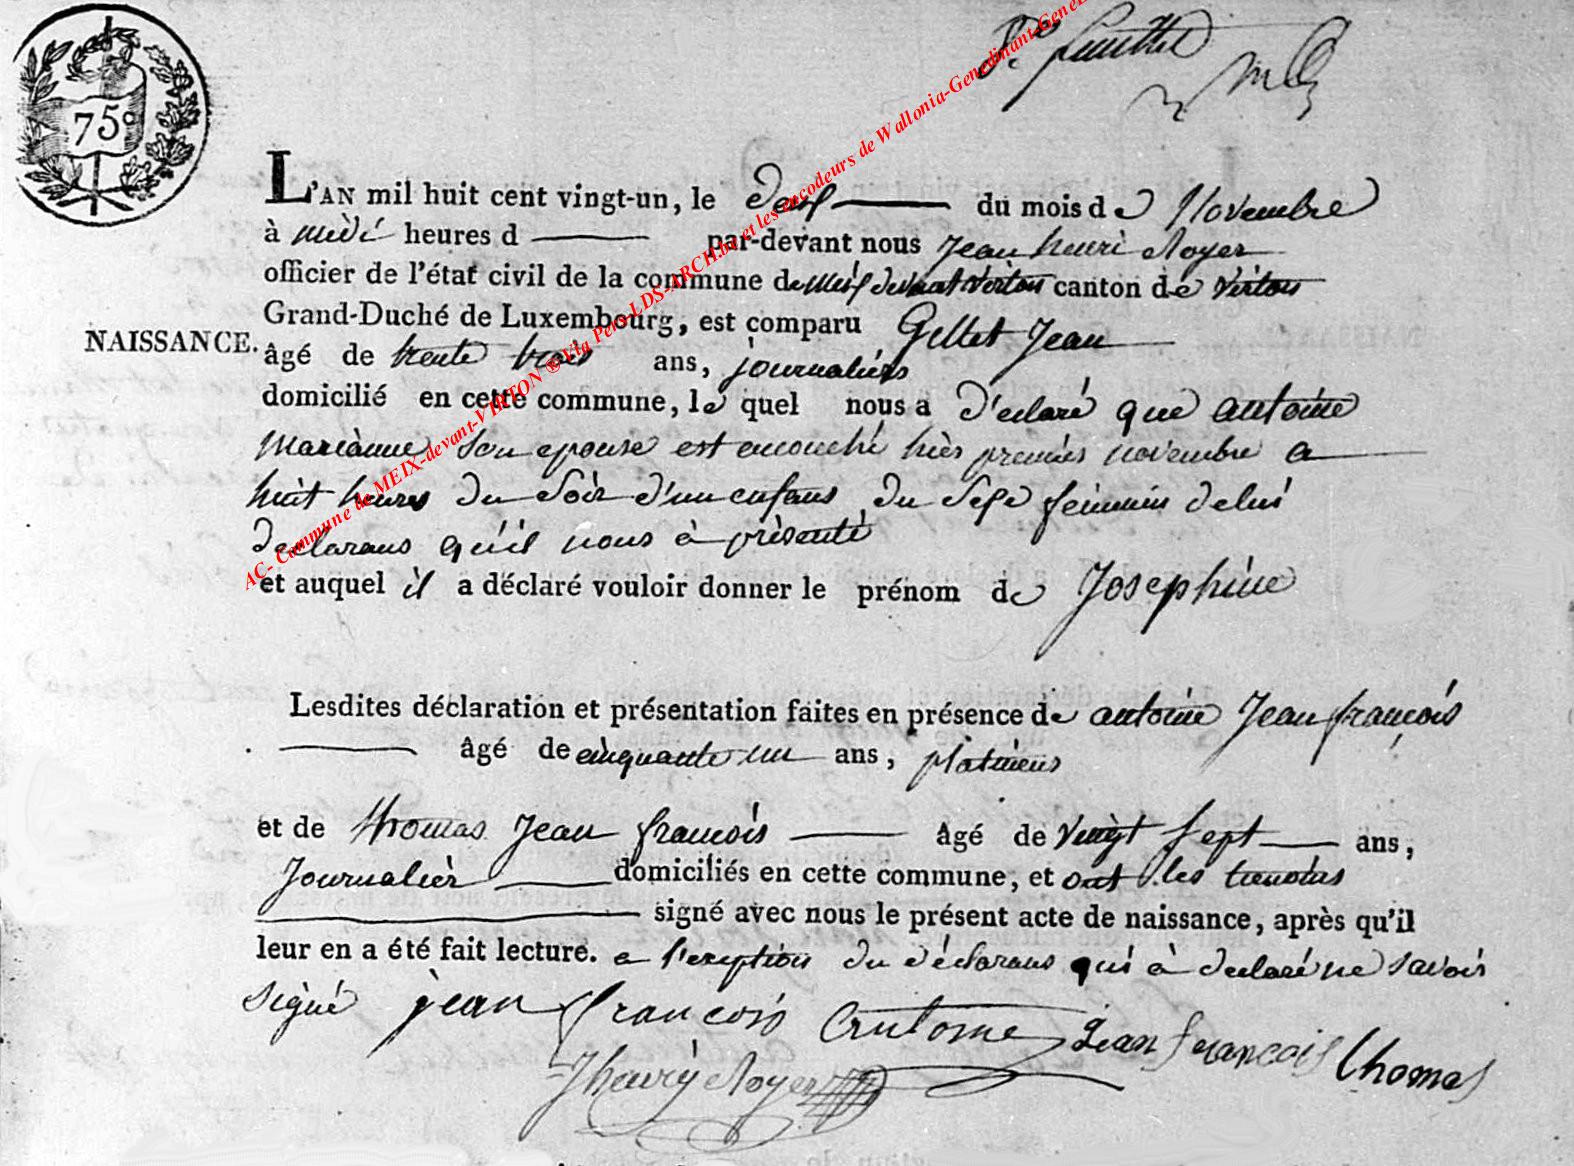 75c
L'AN mil huit cent vingt-un, le deux du mois de Novembre
à midi heures d par-devant nous jean henri Noyer
officier de l'état civil de la commune de meix devant virton canton de virton
Grand-Duché de Luxembourg, est comparu Gillet Jean
NAISSANCE.
âgé de trente trois ans, journaliers
domicilié en cette commune, le quel nous a d'eclaré que antoine
Mariànne son epouse est encouché hièr premier novembre a
huit heures du soir d'un enfans du sexe féminin de lui
declarans qu'il nous à présenté
et auquel il a déclaré vouloir donner le prénom de Josephine
Lesdites déclaration et présentation faites en présence de antoine Jean françois
âgé de cinquante un ans, platineur
et de thomas Jean francois âgé de vingt sept ans,
Journalièr domiciliés en cette commune, et ont les temoins
signé avec nous le présent acte de naissance, après qu'il
leur en a été fait lecture. a l'exeption du déclarans qui à declaré ne savoir
signé jean francois Antoine jean francois thomas
Jhenry Noyer
AC- Commune de MEIX-devant-VIRTON ® Via Pers-LDS-ARCH.be et les encodeurs de Wallonia-Genedinant-Gene